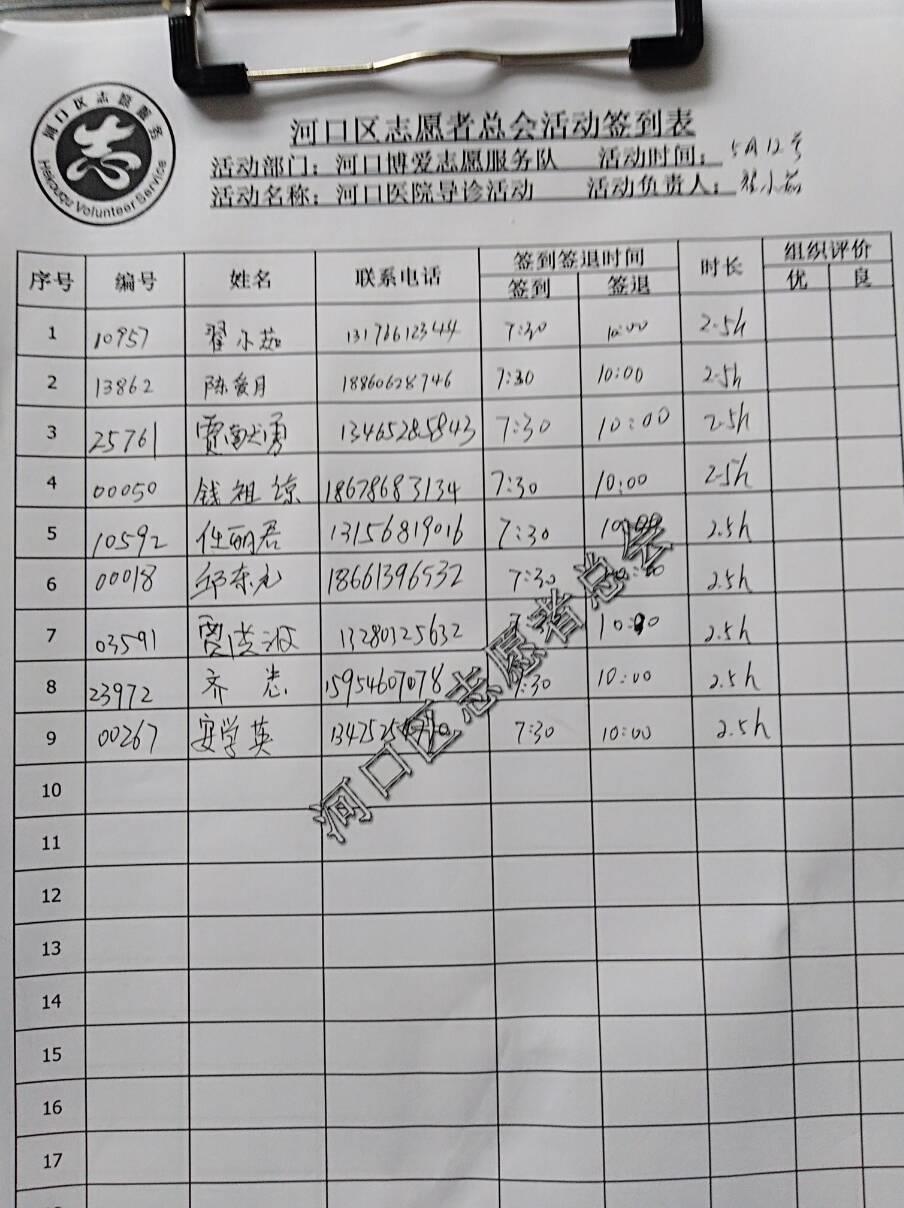 河口区志愿服务
Hekouqu Volunteer Service
河口区志愿者总会活动签到表
活动部门：河口博爱志愿服务队 活动时间：5月12号
活动名称：河口医院导诊活动 活动负责人：翟小茹
序号 编号 姓名 联系电话 签到签退时间 时长 组织评价
签到 签退 优 良
1 10957 翟小茹 13176612344 7:30 10:00 2.5h
2 13862 陈爱月 18860628746 7:30 10:00 2.5h
3 25761 贾献勇 13465285843 7:30 10:00 2.5h
4 00050 钱祖琼 18678683134 7:30 10:00 2.5h
5 10592 任丽君 13156819016 7:30 10:00 2.5h
6 00018 邱东元 18661396532 7:30 2.5h
7 03591 贾洪波 13280125632 10:00 2.5h
8 23972 齐 15954607078 7:30 10:00 2.5h
9 00267 安学英 7:30 10:00 2.5h
10
11
12
13
14
15
16
17
河口区志愿者总会